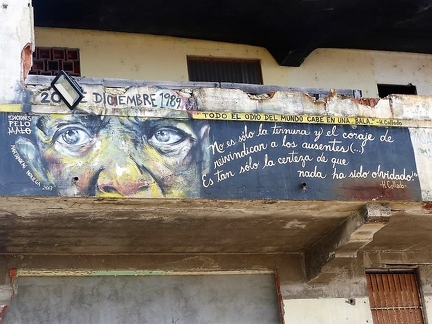 20 DE DICIEMBRE 1989
"TODO EL ODIO DEL MUNDO CABE EN UNA BALA" -H. Collado
EDICIONES
PELO
MALO
2017
No es solo la ternura y el coraje de
reivindican a los ausentes (...)
Es tan solo la certeza de que
nada ha sido olvidado!"
-H. Collado